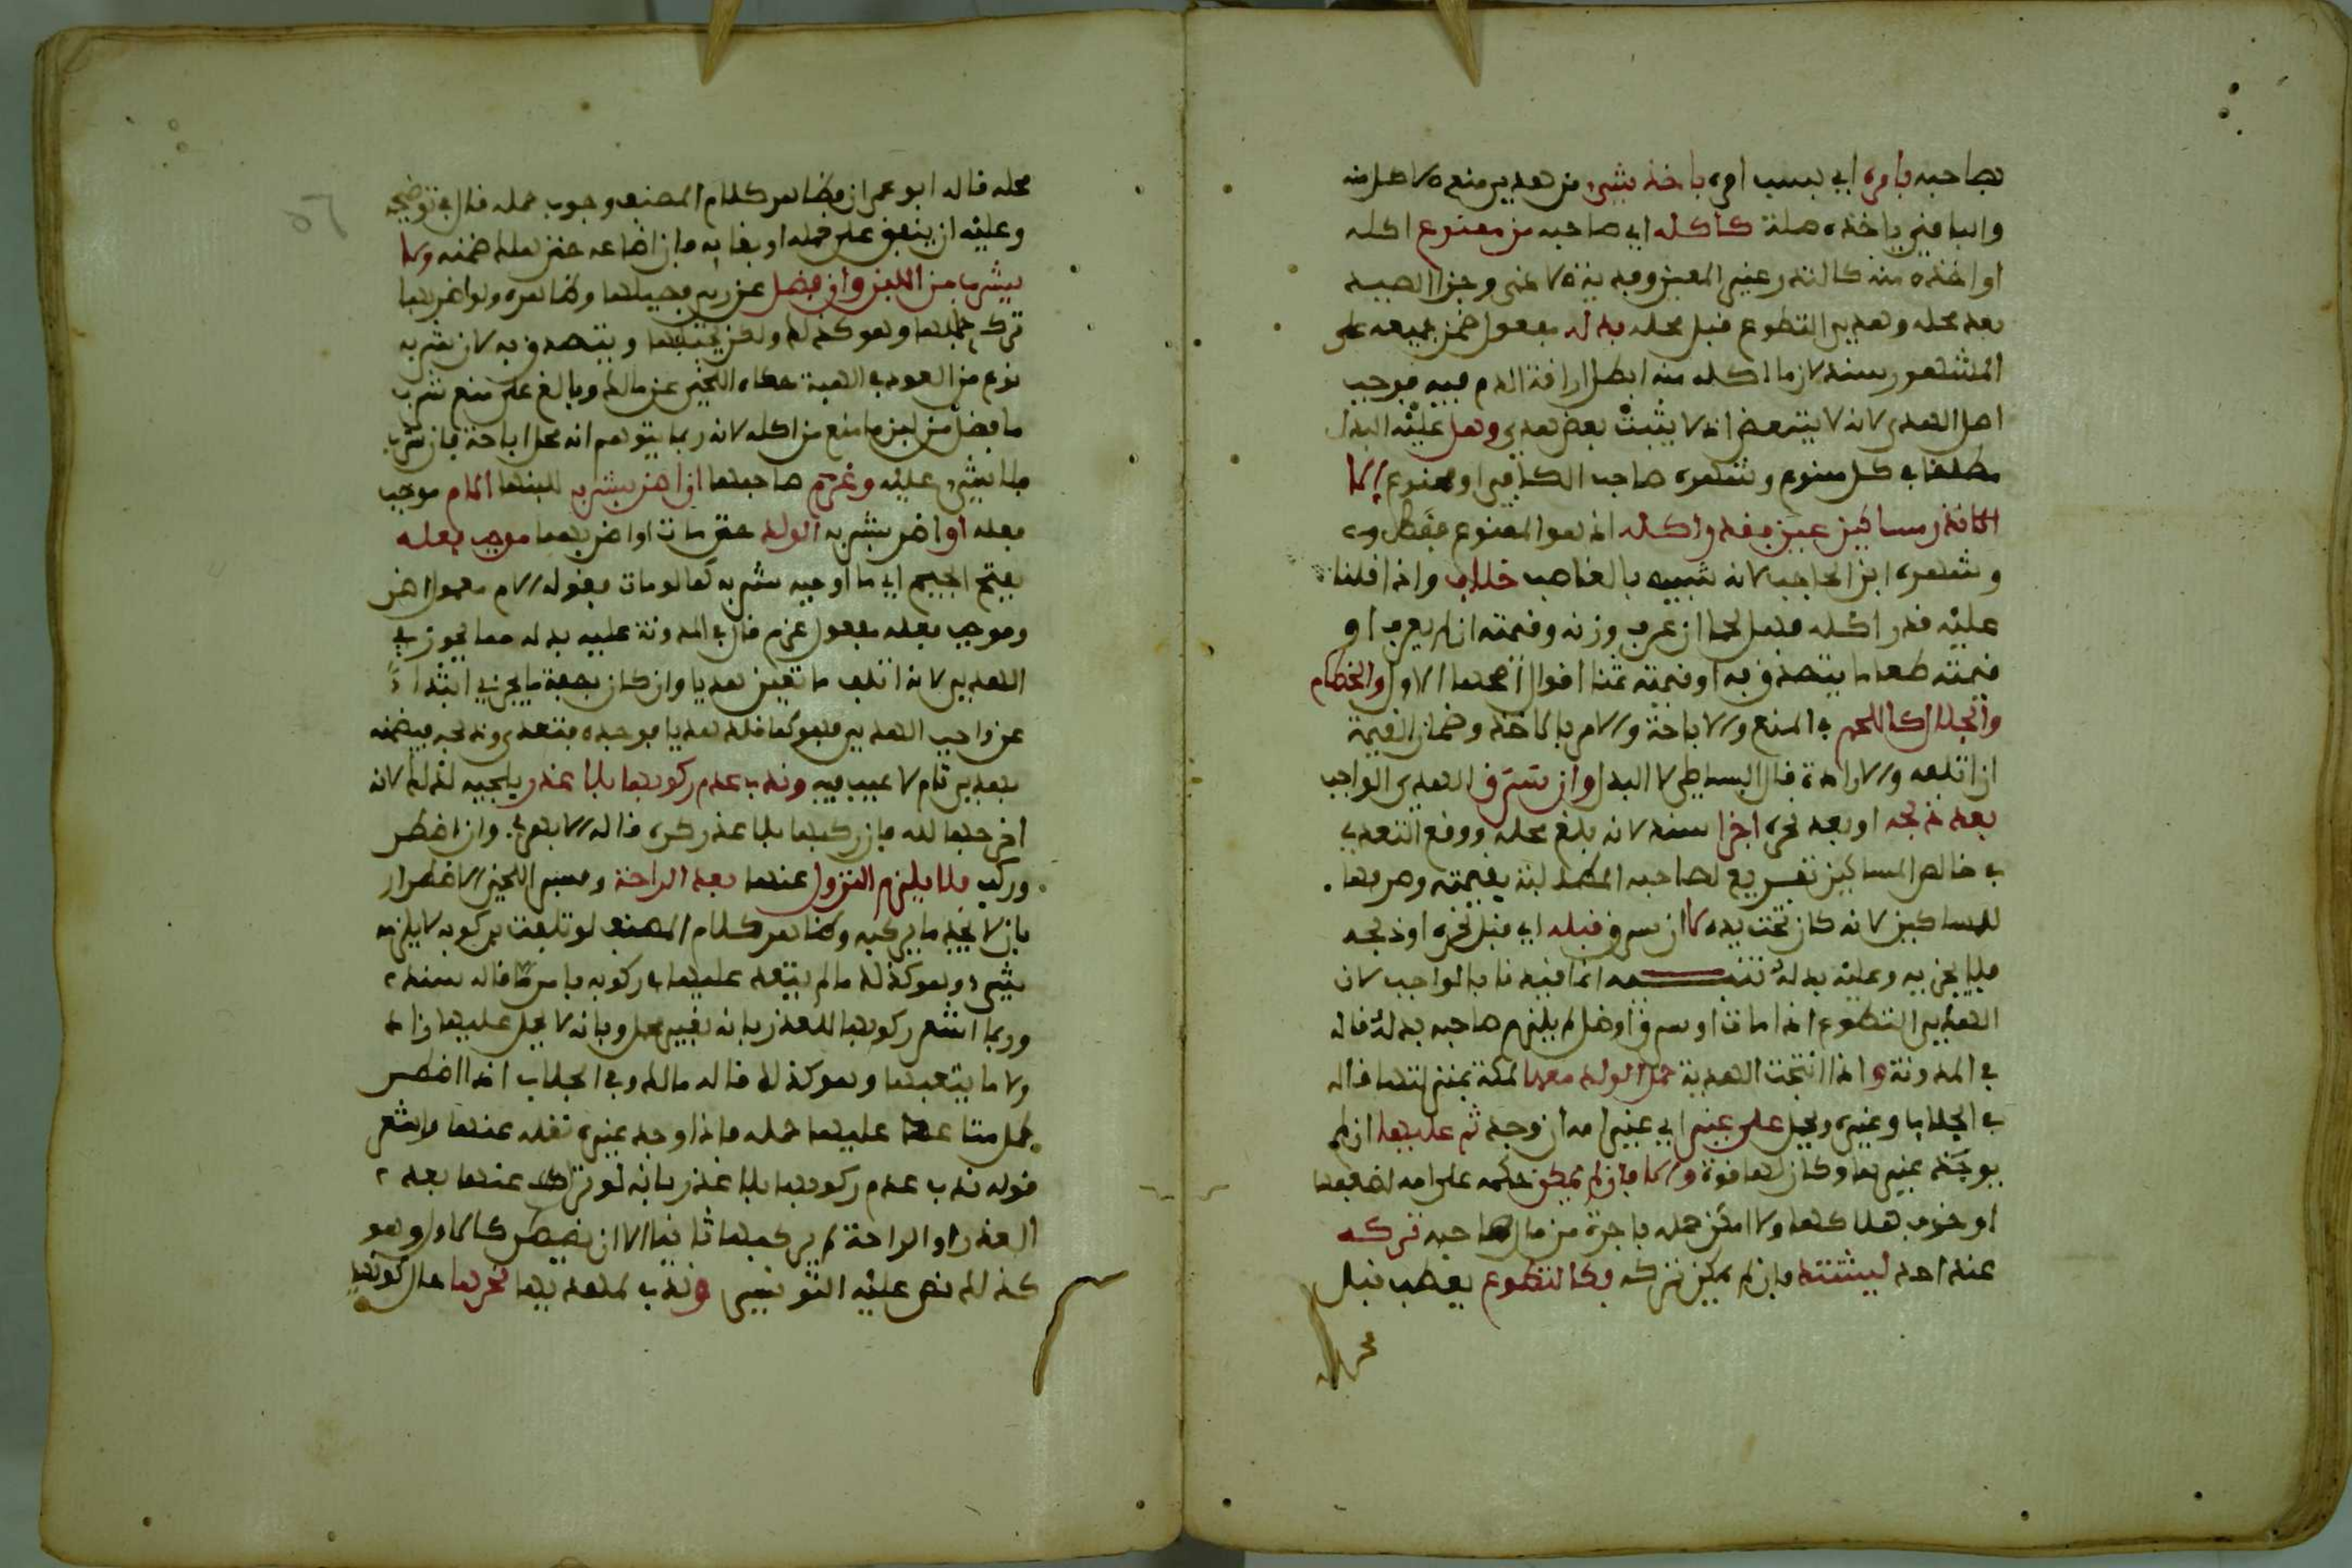 بصاحبه بامره اي بسبب امره باخذ شيء من هدي منع الاكل منه
والباقي باخذه صلة كاكله اي صاحبه من ممنوع اكله
او اخذه منه كالنذر عين المعين وفدية الاذى وجزا الصيد
بعد محله وهدي التطوع قبل محله بدله مفعول ضمن جميعه على
المشهور سند لان ما اكله منه ابطل اراقة الدم فيه فوجب
اصل الهدي لانه لا يتبعض اذ لا يثبت بعض هدي وهل عليه البدل
مطلقا في كل ممنوع وشهره صاحب الكافي او ممنوع الا
ان نذر مساكين عين فقدر اكله اذ هو الممنوع فقط و
وشهره ابن الحاجب لانه شبيه بالغاصب خلاف واذا قلنا
عليه قدر اكله فهل لحما ان عرف وزنه وقيمته ان لم يعرف او
قيمته طعاما يتصدق به او قيمته ثمنا اقوال اصحها الاول والخطام
والجلال كاللحم في المنع والاباحة والامر بالاخذ وضمان القيمة
ان اتلفه والارادة قال البساطي لا البدل وان سرق الهدي الواجب
بعد ذبحه او بعد نحره اجزا سند لانه بلغ محله ووقع التعدي
في خالص المساكين تفريع لصاحبه المطالبة بقيمته وصرفها
للمساكين لانه كان تحت يده لا ان سرق قبله اي قبل نحره او ذبحه
فلا يجزيه وعليه بدله تنبيه انما قيدنا بالواجب لان
الهدي التطوع اذا مات او سرق او ضل لم يلزم صاحبه بدله قاله
في المدونة واذا انتجت الهدية حمل الولد معها لمكة بمنزلتها قاله
في الجلاب وغيره وحمل على غير اي غير امه ان وجد ثم عليها ان لم
يوجد غيرها وكان لها قوة والا فان لم يمكن حمله على امه لضعفها
او خوف هلاكها ولا امكن حمله باجرة من مال صاحبه تركه
عند احد ليشتد فان لم يمكن تركه فكالتطوع يعطب قبل
محله
محله قاله ابو عمران فظاهر كلام المصنف وجوب حمله قال في توضيحه
وعليه ان ينفق على حمله او بقايه فان اضاعه حتى هلك ضمنه ولا
يشرب من اللبن وان فضل عن ريه فصيلها وظاهره ولو اضر بها
ترك حلبها وهو كذلك ولكن يحلبها ويتصدق به لان شربه
نوع من العود في الهبة حكاه اللخمي عن مالك وبالغ على منع شرب
ما فضل من لبن ما منع من اكله لانه ربما يتوهم انه محل اباحة فان شرب
فلا شيء عليه وغرم صاحبها ان اضر بشربه للبنها الام موجب
فعله او اضر بشربه الولد حتى مات او اضر بهما موجب فعله
بفتح الجيم اي ما اوجبه شربه كما لو مات فقوله الام معمول اضر
وموجب فعله مفعول غرم قال في المدونة عليه بدله مما يجوز في
الهدي لانه اتلف ما تعين هديا وان كان بصفة ما يجزي ابتداءً
عن واجب الهدي فهو كما قلد هديا فوجده فتعدى وذبحه فيضمنه
بهدي تام لا عيب فيه وندب عدم ركوبها بلا عذر يلجيه لذلك لانه
اخرجها لله فان ركبها بلا عذر كره قاله الابهري وان اضطر
وركب فلا يلزم النزول عنها بعد الراحة وفسر اللخمي الاضطرار
بان لا يجد ما يركبه وظاهر كلام المصنف لو تلفت بركوبه لا يلزمه
شيء وهو كذلك ما لم يتعد عليها في ركوبه بامر ما قاله سند
وربما اشعر ركوبها للعذر بانه بغير محمل وبانه لا يحمل عليها زاده
ولا ما يتعبها وهو كذلك قاله مالك وفي الجلاب اذا اضطر
لحمل متاعه عليها حمله فاذا وجد غيره نقله عنها واشعر
قوله ندب عدم ركوبها بلا عذر بانه لو ترك عنها بعد
العذر او الراحة لم يركبها ثانيا الا ان يضطر كالاول وهو
كذلك نص عليه التونسي وندب لمهديها نحرها حال كونها